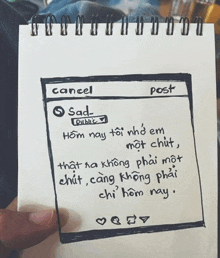 cancel post
S Sad_
Public ▾
Hôm nay tôi nhớ em
một chút,
thật ra không phải một
chút, càng không phải
chỉ hôm nay.